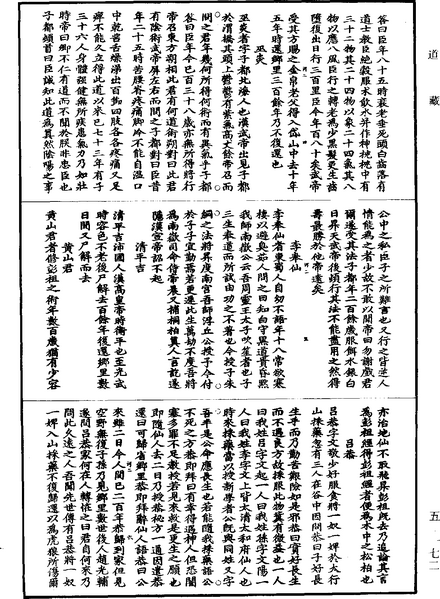 道藏
答曰臣年八十五時衰老垂死頭白齒落有
道士教臣絶穀服朮飲水并作神枕枕中有
三十二物其二十四物以象二十四氣其八
物以應八風臣行之轉老爲少黑髮更生齒
墮復出日行三百里臣今年一百八十矣武帝
受其方賜之金帛老父後入岱山中去十年
五年時還鄉里三百餘年乃不復還也
巫炎
巫炎者字子都北海人也漢武帝出見子都
於渭橋其頭上鬱鬱有紫氣高丈餘帝召而
問之君年幾何所得何術而有異氣乎子都
答曰臣年今已百三十八歲亦無所得將行
帝召東方朔相此君有何道術朔對曰此君
有陰術武帝屏左右而問之子都對曰臣昔
年六十五時苦腰脊疼痛腳冷不能自溫口
中乾苦舌燥涕出百節四肢各各疼痛又足
痺不能久立得此道以來已七十三年有子
三十六人身體強健無所疾患氣力乃如壯
時帝曰卿不仁有道而不聞於朕非忠臣也
子都頓首曰臣誠知此道爲真然陰陽之事
公中之私臣子之所難言也又行之皆逆人
情能爲之者少故不敢以聞帝曰勿謝戲君
爾遂受其法子都年二百餘歲服餌水銀白
日昇天武帝後頗行其法不能盡用之然得
壽最勝於他帝遠矣
李奉仙
李奉仙者東蜀人自幼不語年十八常欲寒
棲以避臭茹人問之曰知白守黑道貴昏黙
我師南嶽公云吾周靈王太子吹笙者也子
三生奉道而所試由功之不著也今授子朱
綱之法將昇度南宮吾師浮丘公授于今付
於子子宜勤焉若更遷此生萬劫不度吾將
爲南嶽司命侍帝晨又補桐栢真人言訖遂
隱漢宣帝詔不起
清平吉
清平吉沛國人漢高皇帝時衛平也至光武
時容色不老後尸解去百餘年復還鄉里數
日間又尸解而去
黄山君
黄山君者修彭祖之術年數百歲猶有少容
亦治地仙不取飛昇彭祖既去乃追論其言
爲彭祖經得彭祖經者便爲木中之松柏也
呂恭
呂恭字文敬少好服食將一奴一婢於太行
山採藥忽有三人在谷中因問恭曰子好長
生乎而乃勤苦艱險如是耶恭曰實好長生
而不遇良方故採服此物冀有微益也一人
曰我姓呂字文起一人曰我姓孫字文陽一
人曰我姓李字文上皆太清太和府仙人也
時來採藥當以授新學者公既與同姓又字
吾半是公命應長生也若能隨我採藥語公
不死之方恭即拜曰有幸得遇神人但恐闇
塞多罪不足教授若見救就是更生之願也
即隨仙人去二日乃授恭秘方一通因遣恭
還曰可歸省鄉里恭即拜辭仙人語恭曰公
來雖二日今人間已二百年恭歸到家但見
空野無復子孫乃見鄉里數世後人趙光輔
遂問呂恭家何在人轉怪之曰君自何來乃
問此久遠之人吾聞先世傳有呂恭將一奴
一婢入山採藥不復歸還以爲虎狼所傷爾
五—七二